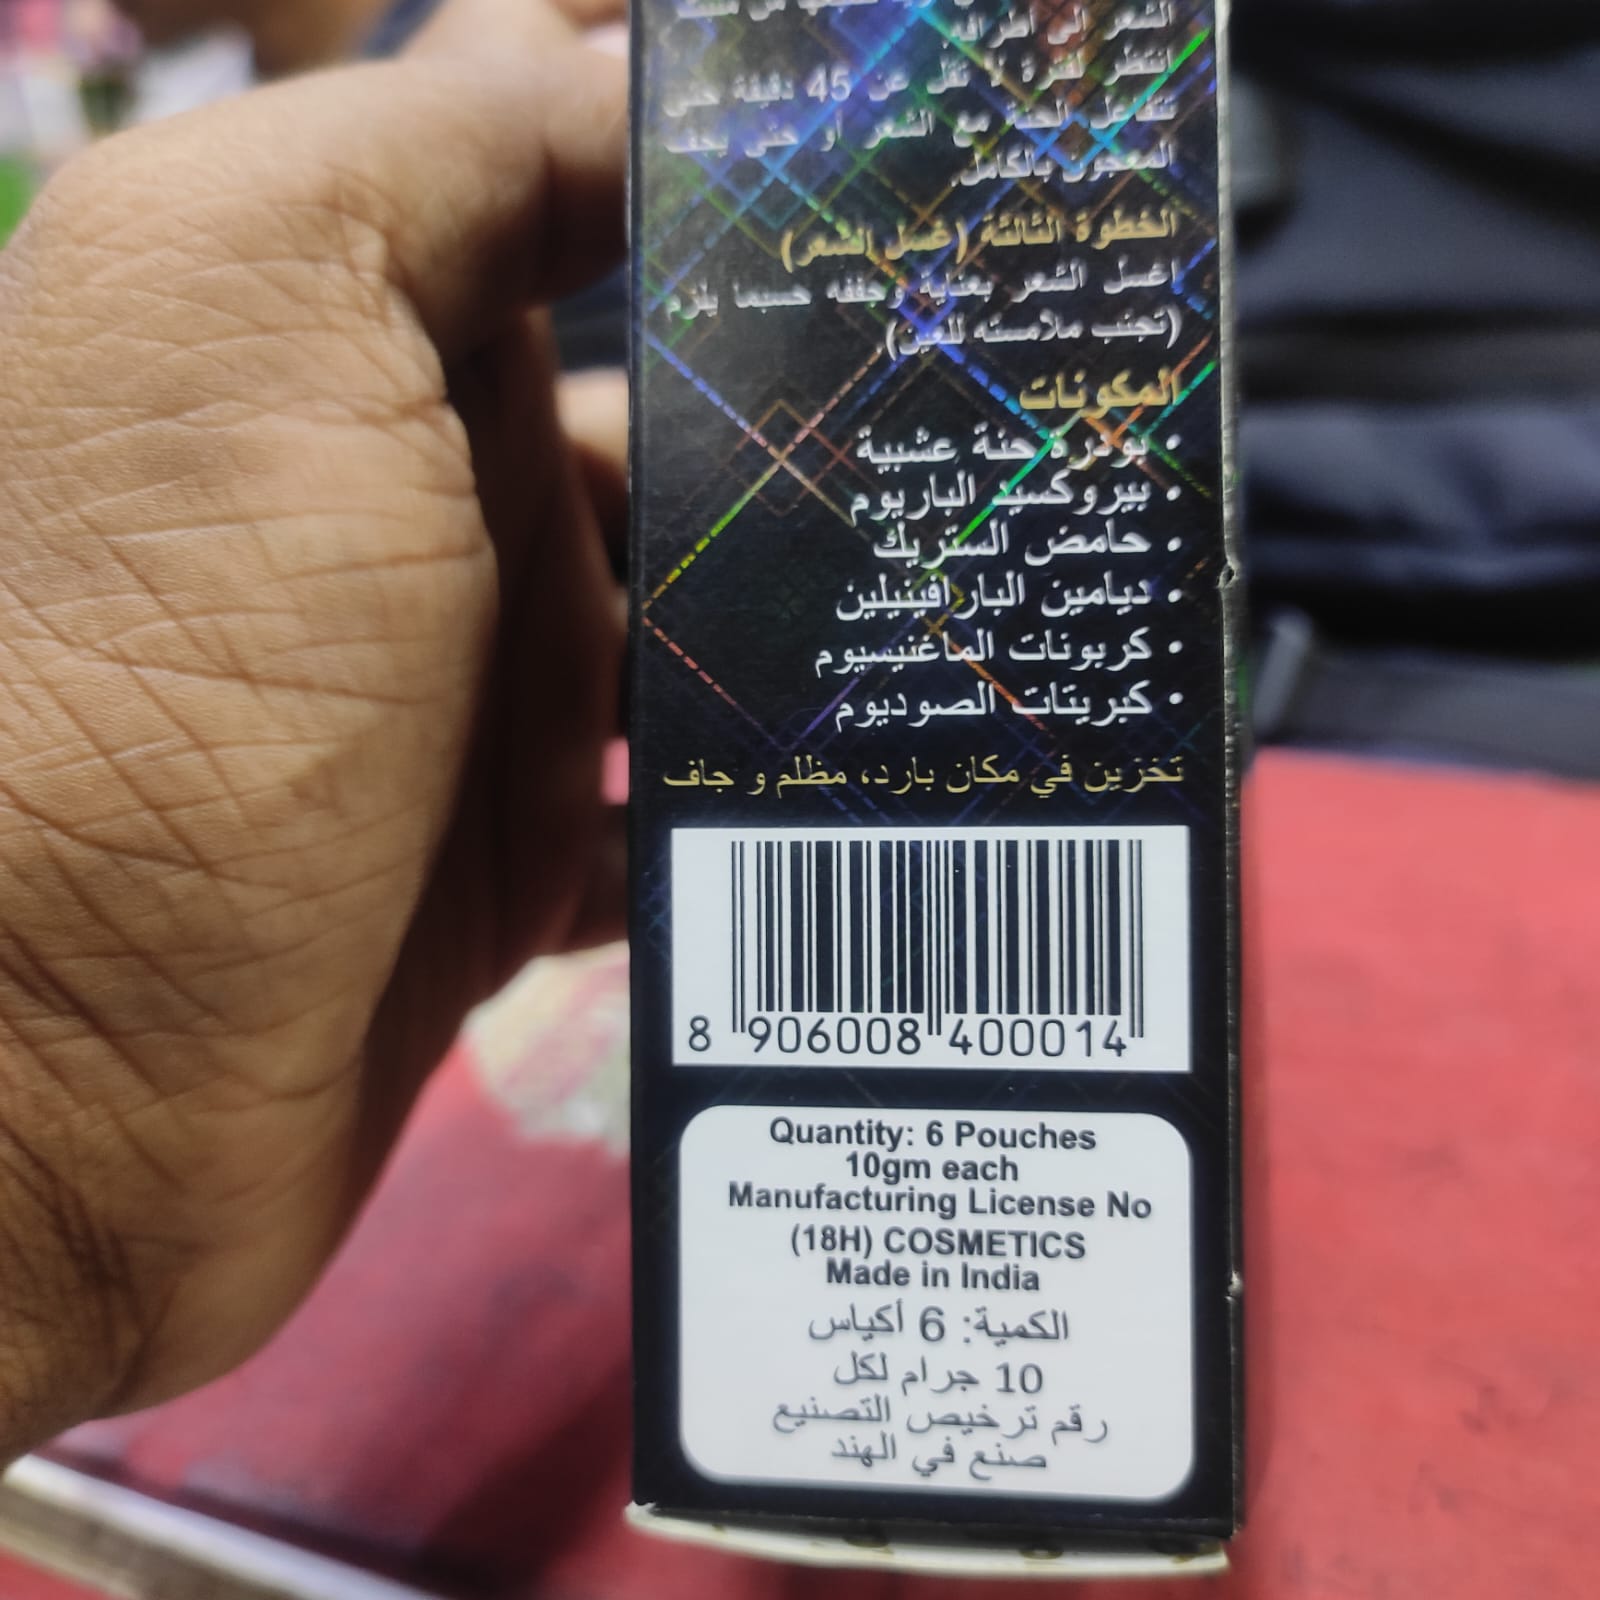 الشعر إلى أطرافه.
انتظر لفترة لا تقل عن 45 دقيقة حتى
تتفاعل الحنة مع الشعر أو حتى يجف
المعجون بالكامل.
الخطوة الثالثة (غسل الشعر)
اغسل الشعر بعناية وجففه حسبما يلزم
(تجنب ملامسته للعين)
المكونات
• بودرة حنة عشبية
• بيروكسيد الباريوم
• حامض الستريك
• ديامين البارافينيلين
• كربونات الماغنيسيوم
• كبريتات الصوديوم
تخزين في مكان بارد، مظلم و جاف
8 906008 400014
Quantity: 6 Pouches
10gm each
Manufacturing License No
(18H) COSMETICS
Made in India
الكمية: 6 أكياس
10 جرام لكل
رقم ترخيص التصنيع
صنع في الهند